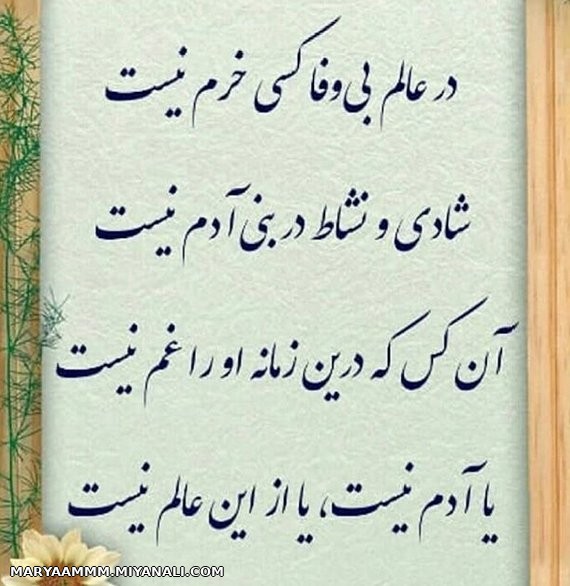 در عالم بی‌وفا کسی خرم نیست
شادی و نشاط در بنی آدم نیست
آن کس که درین زمانه او را غم نیست
یا آدم نیست، یا از این عالم نیست
MARYAAMMM.MIYANALI.COM